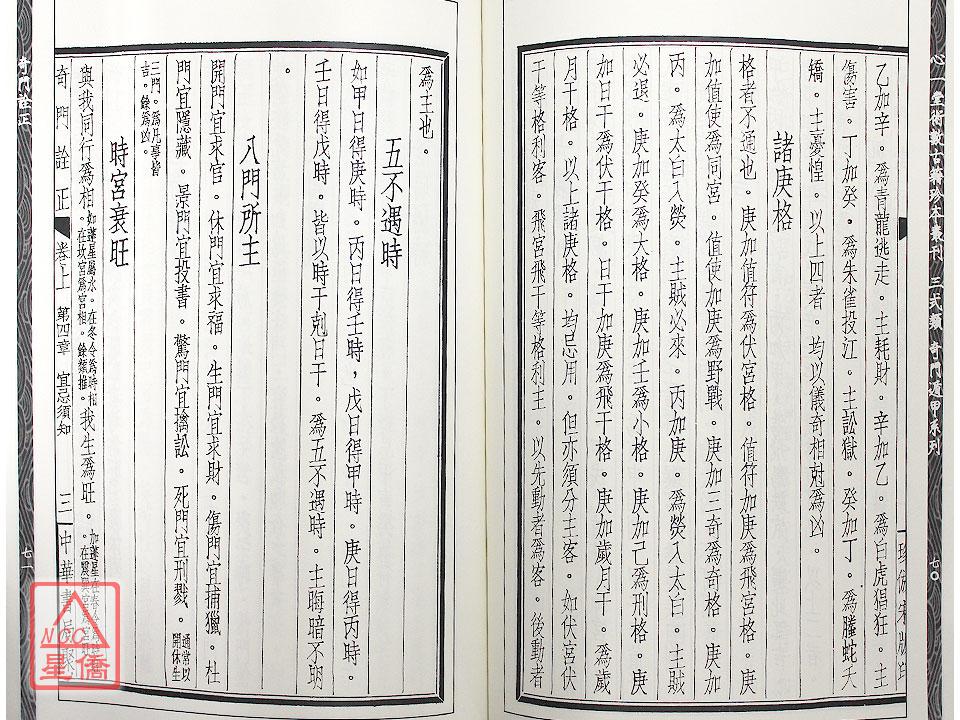 心一堂術數古籍珍本叢刊　三式類　奇門遁甲系列
七〇
珍倣宋版印
乙加辛。爲青龍逃走。主耗財。辛加乙。爲白虎猖狂。主
傷害。丁加癸。爲朱雀投江。主訟獄。癸加丁。爲螣蛇夭
矯。主憂惶。以上四者。均以儀奇相尅爲凶。
諸庚格
格者不通也。庚加值符爲伏宮格。值符加庚爲飛宮格。庚
加值使爲同宮。值使加庚爲野戰。庚加三奇爲奇格。庚加
丙。爲太白入熒。主賊必來。丙加庚。爲熒入太白。主賊
必退。庚加癸爲大格。庚加壬爲小格。庚加己爲刑格。庚
加日干爲伏干格。日干加庚爲飛干格。庚加歲月干。爲歲
月干格。以上諸庚格。均忌用。但亦須分主客。如伏宮伏
干等格利客。飛宮飛干等格利主。以先動者爲客。後動者
爲主也。
五不遇時
如甲日得庚時。丙日得壬時，戊日得甲時。庚日得丙時。
壬日得戊時。皆以時干剋日干。爲五不遇時。主晦暗不明
。
八門所主
開門宜求官。休門宜求福。生門宜求財。傷門宜捕獵。杜
門宜隱藏。景門宜投書。驚門宜擒訟。死門宜刑戮。通常以開休生
三門。爲凡事皆吉。餘爲凶。
時宮衰旺
與我同行爲相。如蓬星屬水。在冬令爲時相。在坎宮爲宮相。餘類推。我生爲旺。
奇門詮正
卷上　第四章　宜忌須知
三一
中華書局聚
奇門詮正
七一
NCC
星僑